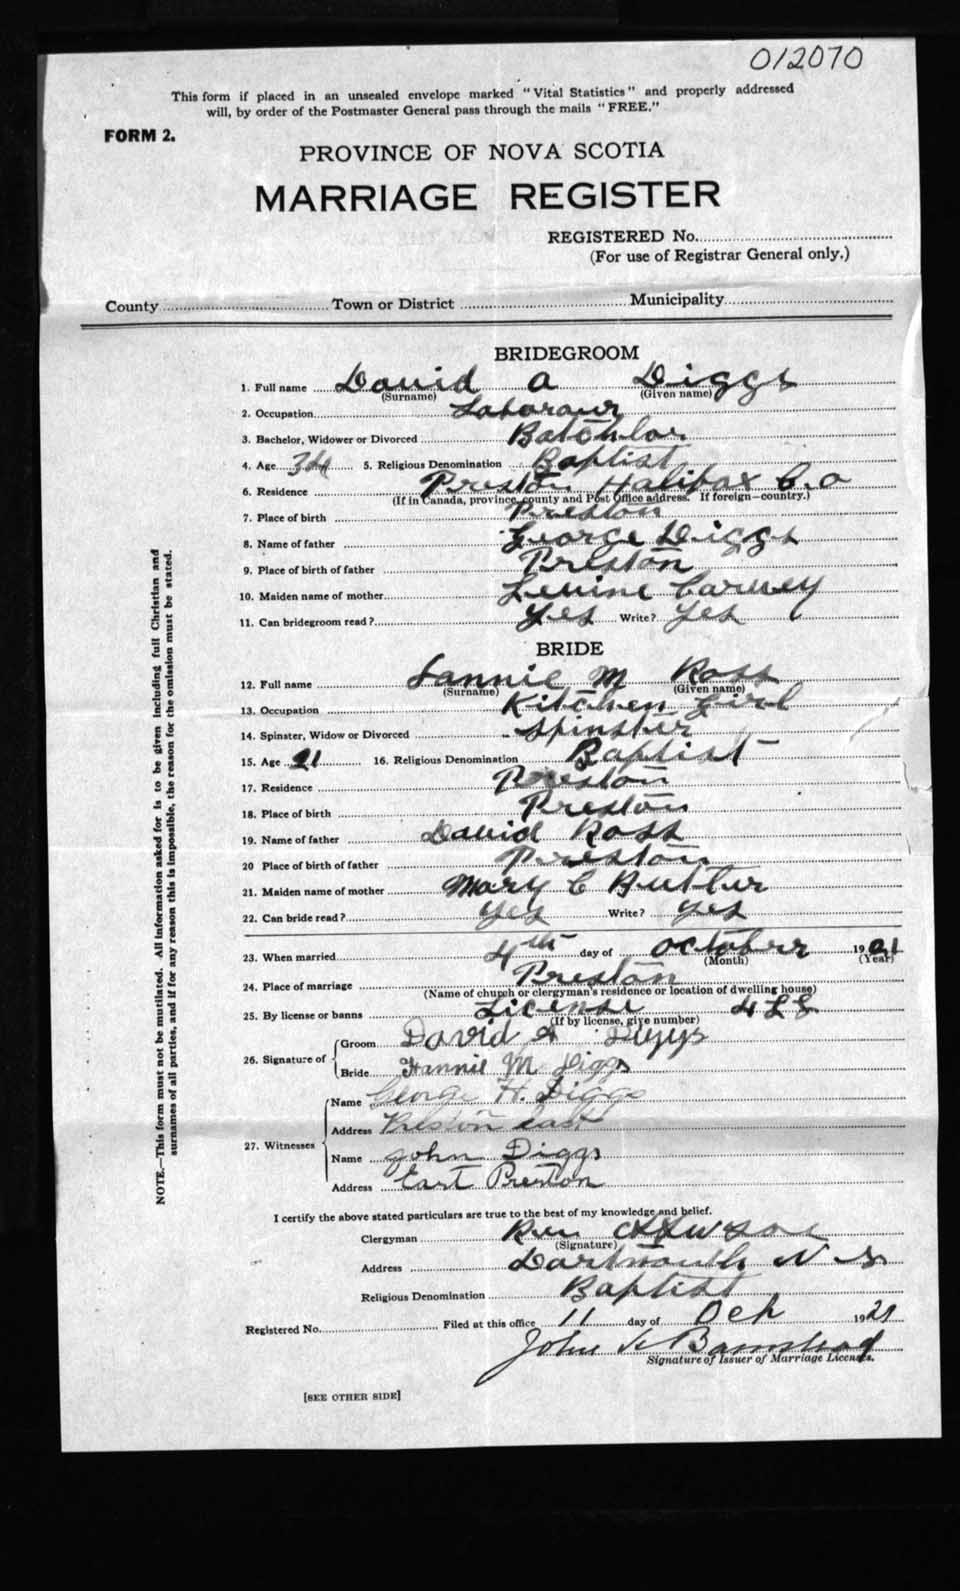 012070
This form if placed in an unsealed envelope marked "Vital Statistics" and properly addressed
will, by order of the Postmaster General pass through the mails "FREE."
FORM 2.
PROVINCE OF NOVA SCOTIA
MARRIAGE REGISTER
REGISTERED No.
(For use of Registrar General only.)
County Town or District Municipality
BRIDEGROOM
1. Full name David a Diggs
(Surname) (Given name)
2. Occupation Labourour
3. Bachelor, Widower or Divorced Batchlor
4. Age 34 5. Religious Denomination Baptist
6. Residence Preston Halifax C.o
(If in Canada, province, county and Post Office address. If foreign—country.)
7. Place of birth Preston
8. Name of father George Diggs
9. Place of birth of father Preston
10. Maiden name of mother Levine Carvey
11. Can bridegroom read? Yes Write? Yes
BRIDE
12. Full name Fannie M Ross
(Surname) (Given name)
13. Occupation Kitchen Girl
14. Spinster, Widow or Divorced Spinster
15. Age 21 16. Religious Denomination Baptist
17. Residence Preston
18. Place of birth Preston
19. Name of father David Ross
20 Place of birth of father Preston
21. Maiden name of mother Mary C Buttur
22. Can bride read? Yes Write? Yes
23. When married 4th day of Octobrr 1921
(Month) (Year)
24. Place of marriage Preston
(Name of church or clergyman's residence or location of dwelling house)
25. By license or banns License
(If by license, give number)
26. Signature of Groom David A Diggs
Bride Fannie M Diggs
27. Witnesses
Name George H. Diggs
Address Preston East
Name John Diggs
Address East Preston
I certify the above stated particulars are true to the best of my knowledge and belief.
Clergyman Rev
(Signature)
Address Dartmouth N S
Religious Denomination Baptist
Registered No. Filed at this office 11 day of Och 1921
John
Signature of Issuer of Marriage Licenses.
[SEE OTHER SIDE]
NOTE.—This form must not be mutilated. All information asked for is to be given including full Christian and
surnames of all parties, and if for any reason this is impossible, the reason for the omission must be stated.